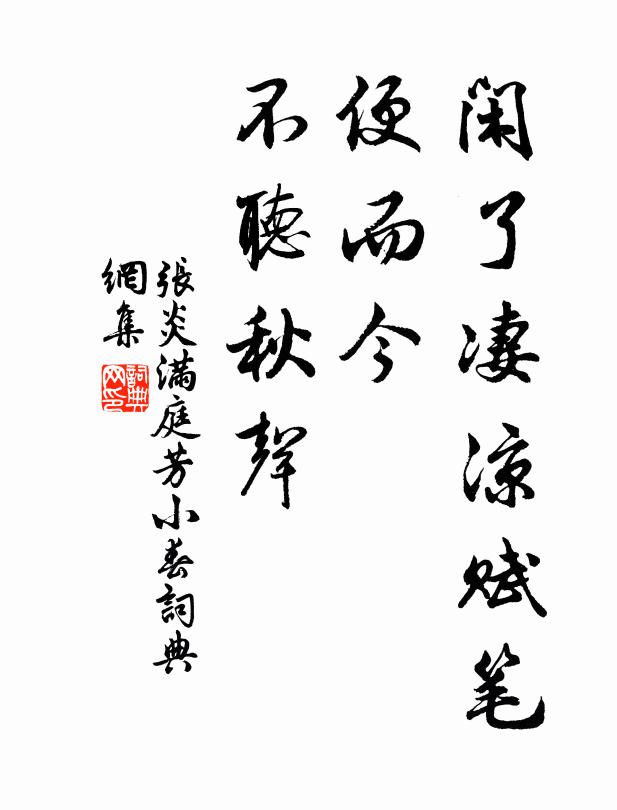 閑了淒涼赋笔
便而今
不聽秋聲
張炎滿庭芳小春詞典
網集
詞典网印